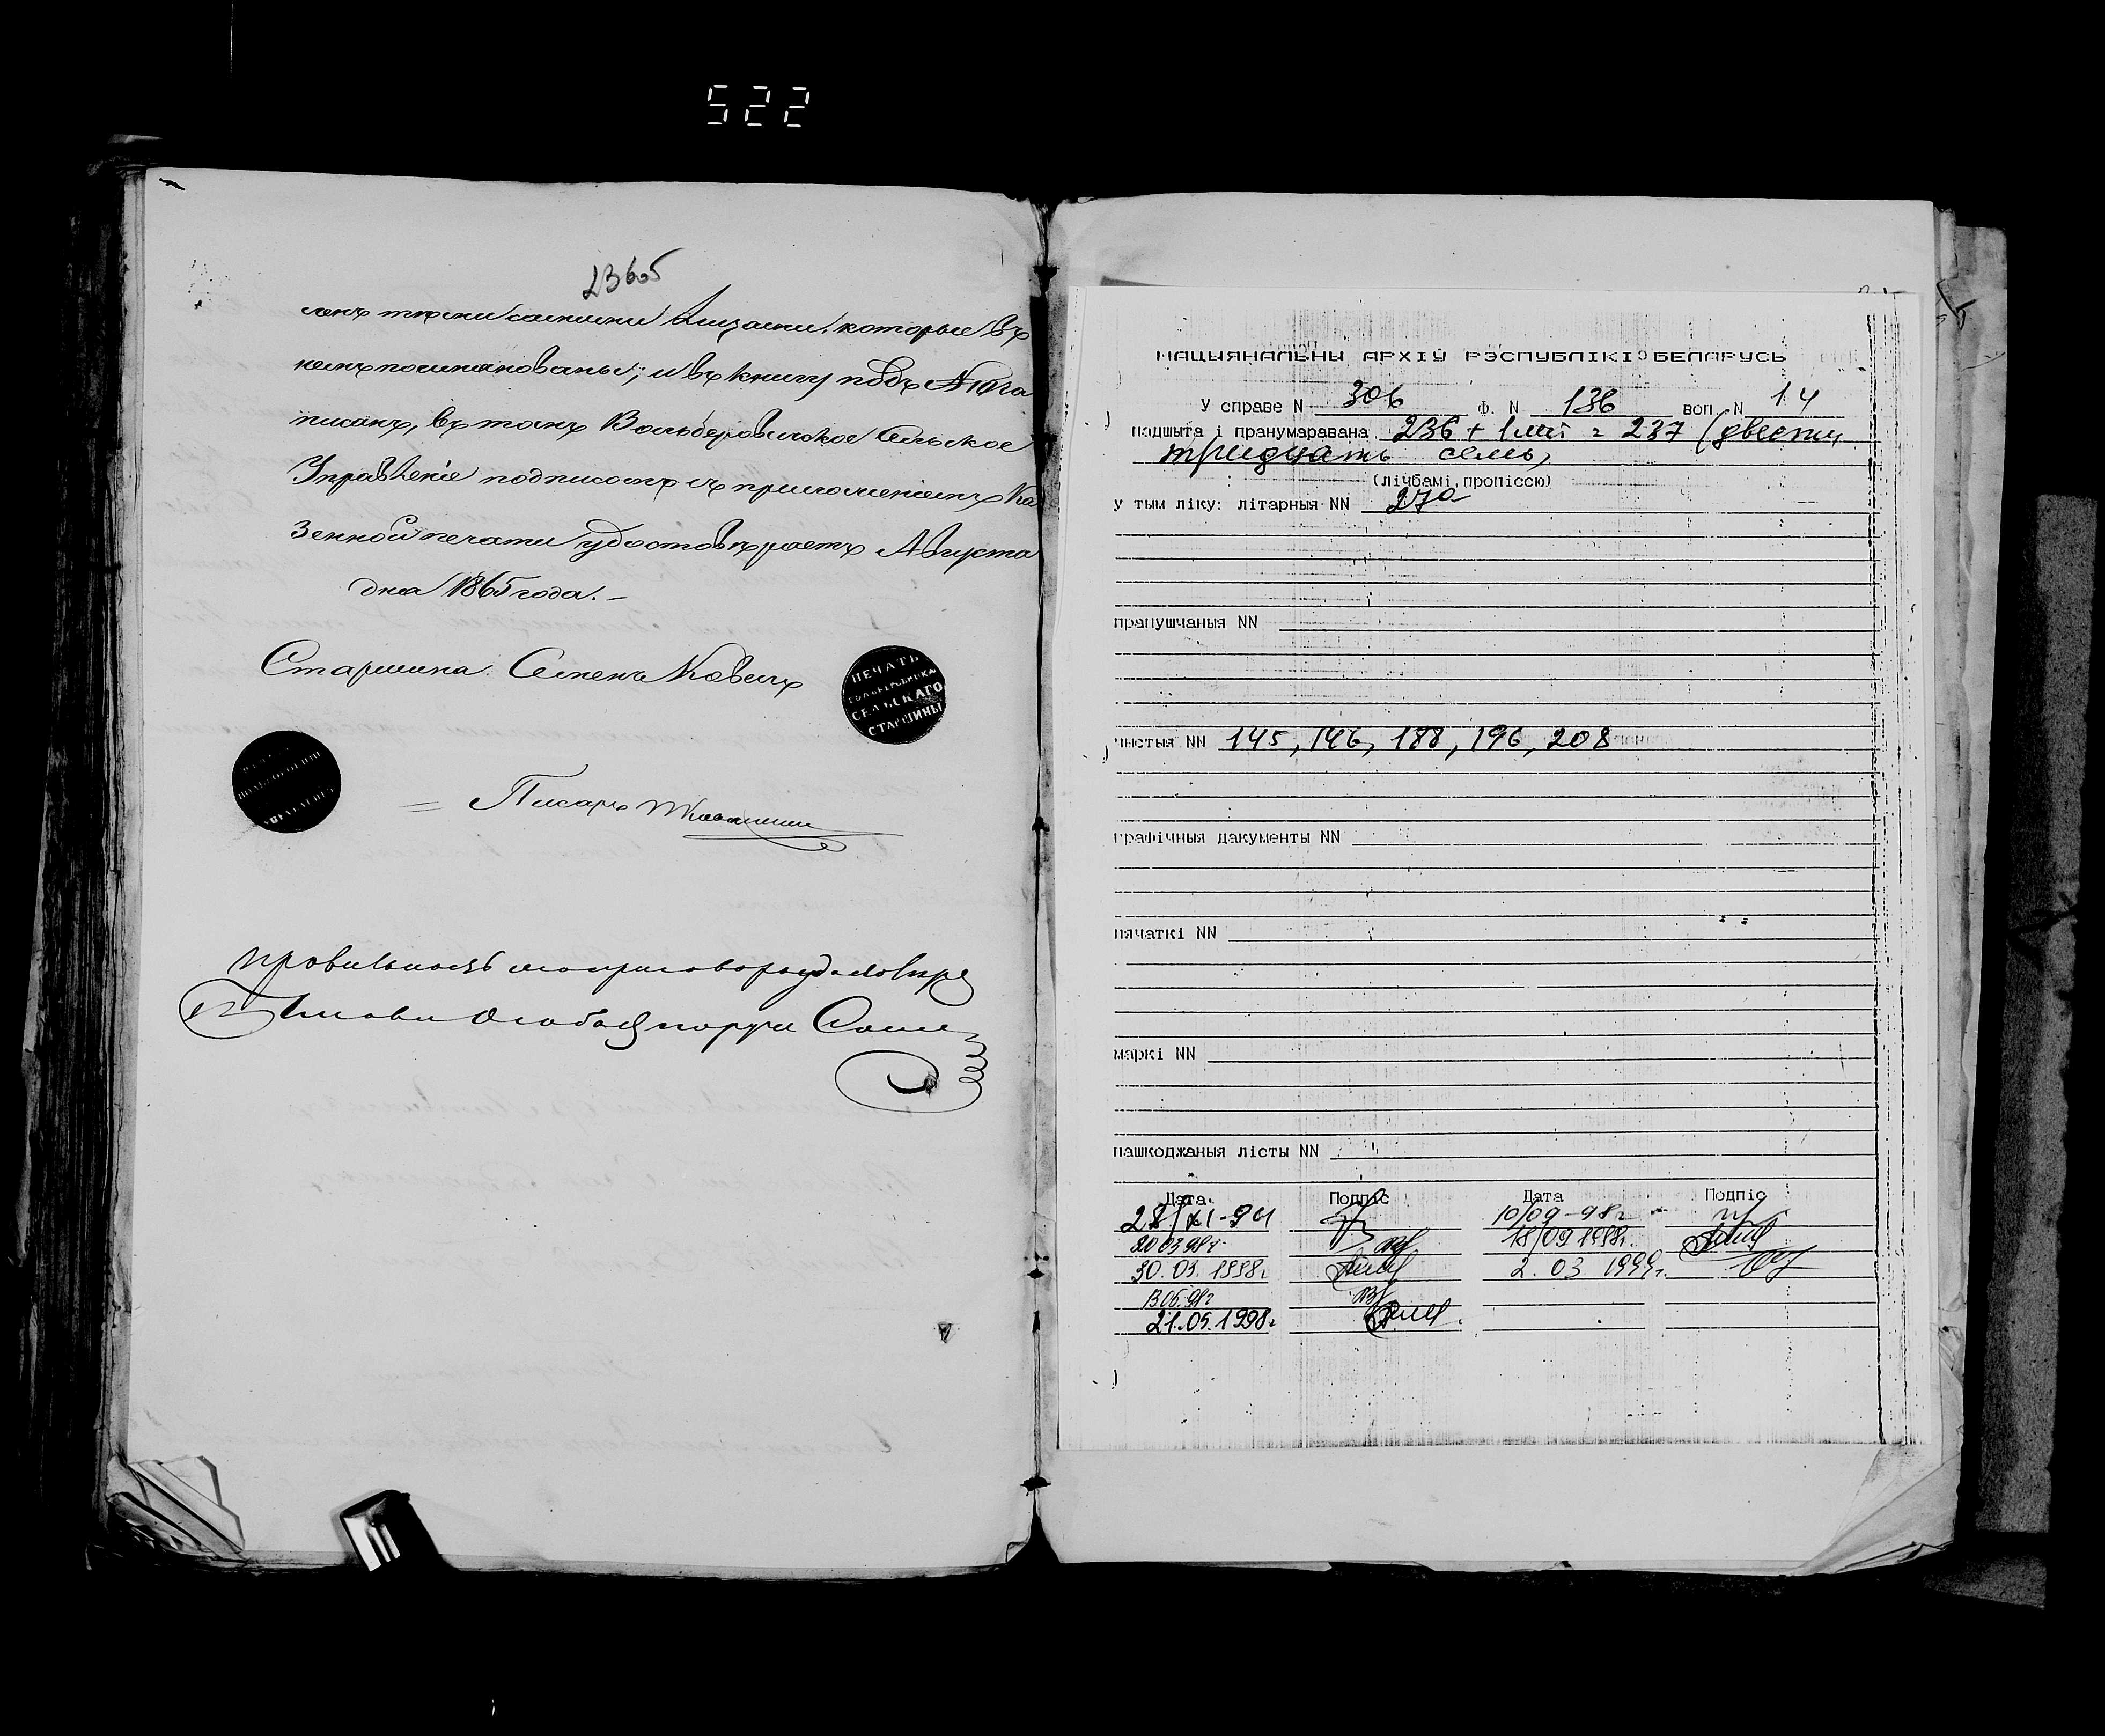 522
236об
ленъ тѣми самыми лицами, которые въ
немъ поименованы; и въ книгу подъ № 10 за
писанъ, въ томъ Вольберовичское Сельское
Управленіе подписомъ съ приложеніемъ Ка
зенной печати удостовѣряетъ Августа
дня 1865 года. —
Старшина Семенъ
ПЕЧАТЬ
СЕЛЬСКАГО
СТАРШИНЫ
Писарь
НАЦЫЯНАЛЬНЫ АРХІЎ РЭСПУБЛІКІ БЕЛАРУСЬ
У справе N 306 Ф. N 136 воп. N 14
падшыта і пранумаравана 236 + 1 лит = 237 (двести
тридцать семь)
(лічбамі, пропіссю)
у тым ліку: літарныя NN 27а
прапушчаныя NN
чыстыя NN 145, 146, 188, 196, 208
графічныя дакументы NN
пячаткі NN
маркі NN
пашкоджаныя лісты NN
Дата Подпіс Дата Подпіс
28/XI-94 10/09-98г
20 03 98г 18/09 1998г.
30.03.1998г. 2.03.1999г.
13 05.98г
21.05.1998г.